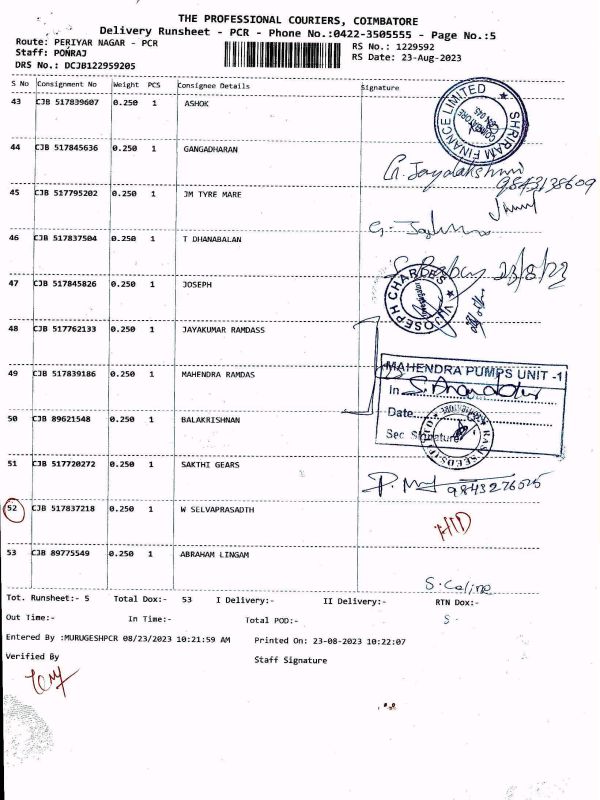 THE PROFESSIONAL COURIERS, COIMBATORE
Delivery Runsheet - PCR - Phone No.:0422-3505555 - Page No.:5
Route: PERIYAR NAGAR - PCR RS No.: 1229592
Staff: PONRAJ RS Date: 23-Aug-2023
DRS No.: DCJB122959205
S No Consignment No Weight PCS Consignee Details Signature
43 CJB 517839607 0.250 1 ASHOK
SHRIRAM FINANCE LIMITED
44 CJB 517845636 0.250 1 GANGADHARAN
G. Jayalakshmi
9843138609
45 CJB 517795202 0.250 1 JM TYRE MARE
46 CJB 517837504 0.250 1 T DHANABALAN
23/8/23
47 CJB 517845826 0.250 1 JOSEPH
V.JOSEPH CHARLES
48 CJB 517762133 0.250 1 JAYAKUMAR RAMDASS
49 CJB 517839186 0.250 1 MAHENDRA RAMDAS
MAHENDRA PUMPS UNIT -1
In
Date
Sec Signature
50 CJB 89621548 0.250 1 BALAKRISHNAN
51 CJB 517720272 0.250 1 SAKTHI GEARS
52 CJB 517837218 0.250 1 W SELVAPRASADTH
53 CJB 89775549 0.250 1 ABRAHAM LINGAM
S. Celine
Tot. Runsheet:- 5 Total Dox:- 53 I Delivery:- II Delivery:- RTN Dox:-
Out Time:- In Time:- Total POD:- S
Entered By :MURUGESHPCR 08/23/2023 10:21:59 AM Printed On: 23-08-2023 10:22:07
Verified By Staff Signature